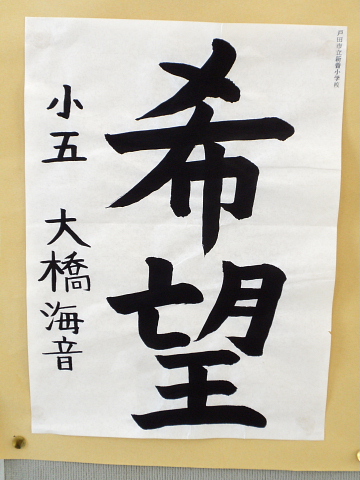 戸田市立新曽小学校
希望
小五 大橋海音